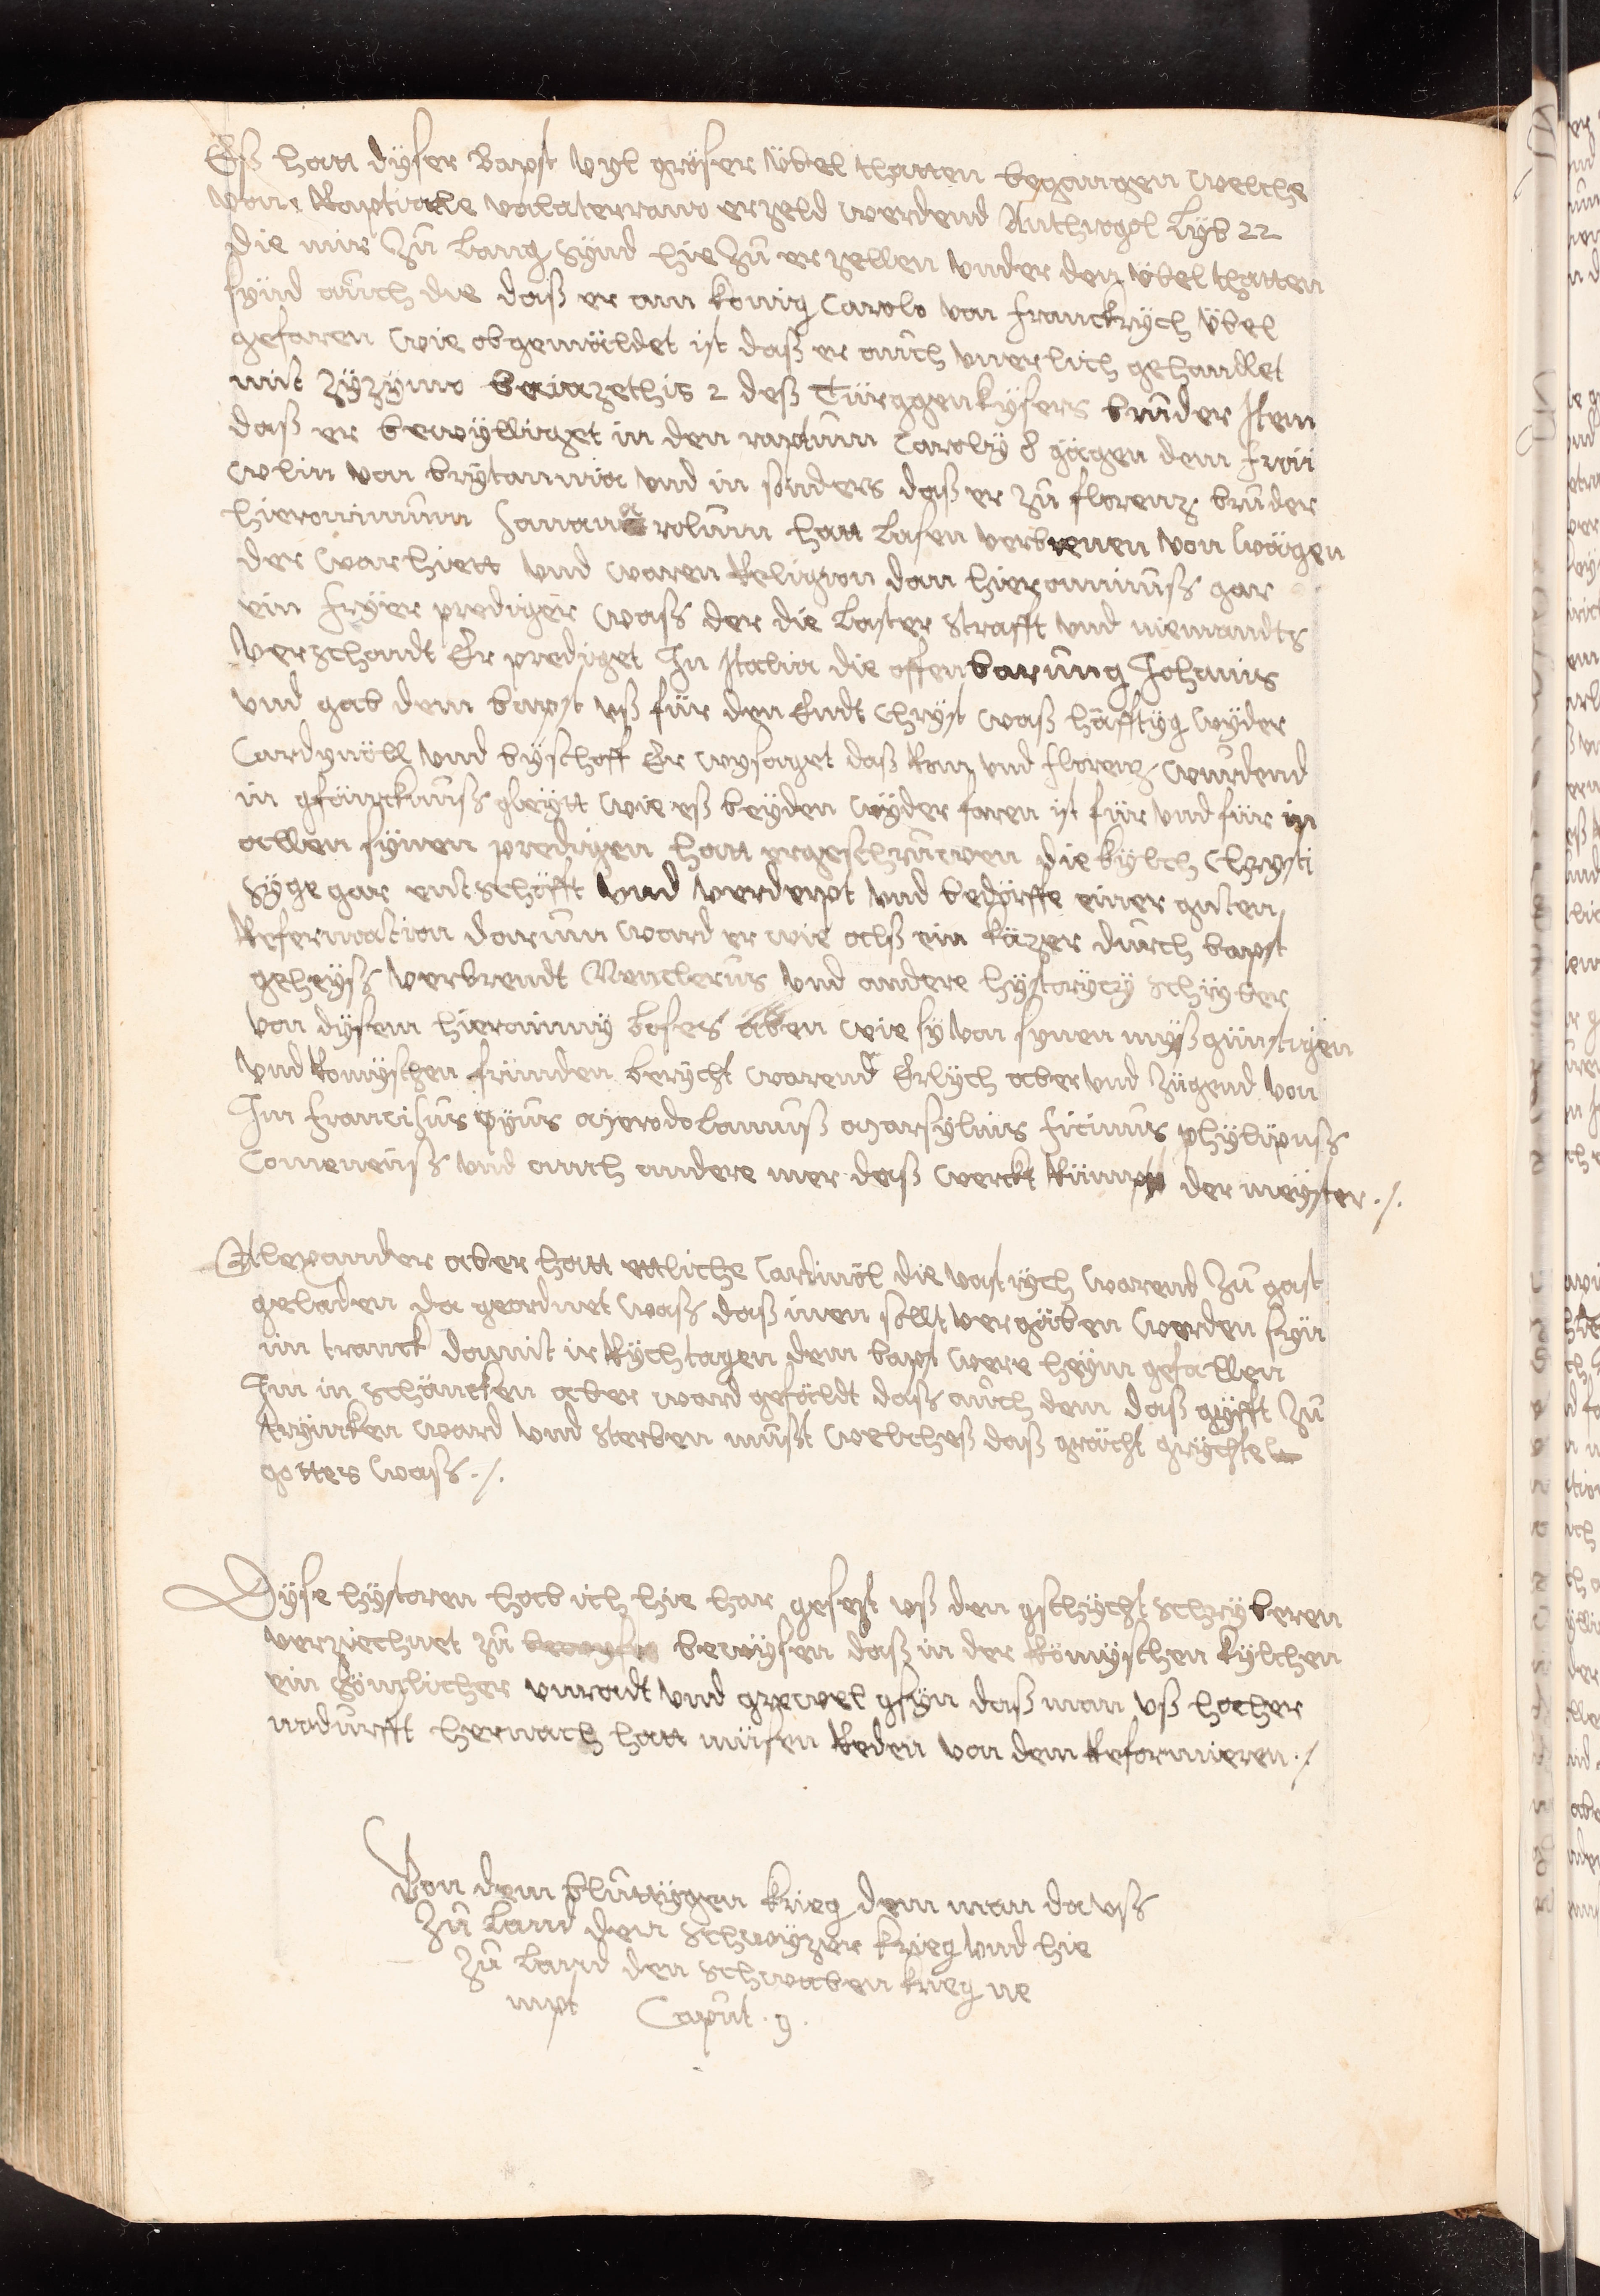 Eß hatt dyser Bapst vyl grosser übel thatten begangen welche
von Raptiaele volaterrano erzeld werdend Anthropol Lyb 22
die mir zů lang synd hie zů erzellen vnder den übel thatten
synd aůch die daß er am konig Carolo von franckrych übel
gefaren wie obgemäldet ist daß er aůch vnerlich gehandlet
mit Zyzymo baiazethis 2 deß Türggenkysers brůder Item
daß er bewylliget in den raptum Caroly 8 gägen dem fröi
wlin von brytannia vnd in sonders daß er zů florenz brůder
hieronimum sauanarolum hatt lasen verbrenen von wägen
der warhiett vnd waren Religion dan hieronimuß gar
ein fryer prediger waß der die laster strafft vnd niemandts
verschondt Er prediget In Italia die offenbarung Johanis
vnd gab dem bapst vß für den Endt Chryst waß häfftyg wyder
Cardynöll vnd byschoff Er wysaget daß Rom vnd florenz wurdend
in gfäncknuß gleytt wie eß beyden wyder faren ist für vnd für in
allen synen predigen hatt er geschruwen die kylch Chrysti
syge gar entschöfft vnd verderpt vnd bedörffe einer guten
Refermation darum ward er wie alß ein käzer durch bapst
geheyß verbrendt Nauclerus vnd andere hystorycy schryber
von dysem hieronimy boses aben wie sy von synen myßgünstigen
vnd Romyschen fründen berycht warend Erlych aber vnd zügend von
Im francissus pyus merodolanuß marsylius ficinus phylipuß
Comeneuß vnd auch andere mer daß werckt Rümpt der meyster ./.

Alexander aber hatt ettliche Cardinöl die vast rych warend zů gast
geladen da geordnet waß daß inen sollt vergäben werden syn
im tranck damit ir Rychtagen dem bapst were heym gefallen
Im in schäncken aber ward gefäldt daß aůch dem daß gyfft zů
tryncken ward vnd sterben mußt welcheß daß grächt grychte
gottes waß ./.

Dyse hystoren hab ich hie har gesezt vß den gschycht schryberen
verziechnet zů bewysen daß in der Römyschen kylchen
ein sömlicher vnradt vnd grewel gsyn daß man vß hocher
nodurfft hernach hatt müsen Reden von dem Reformieren ./.

Von dem blůttygen krieg dem man da vß
zů land den schwyzer krieg vnd hie
zů land den schwaben krieg ne
mpt Caput . 9 .